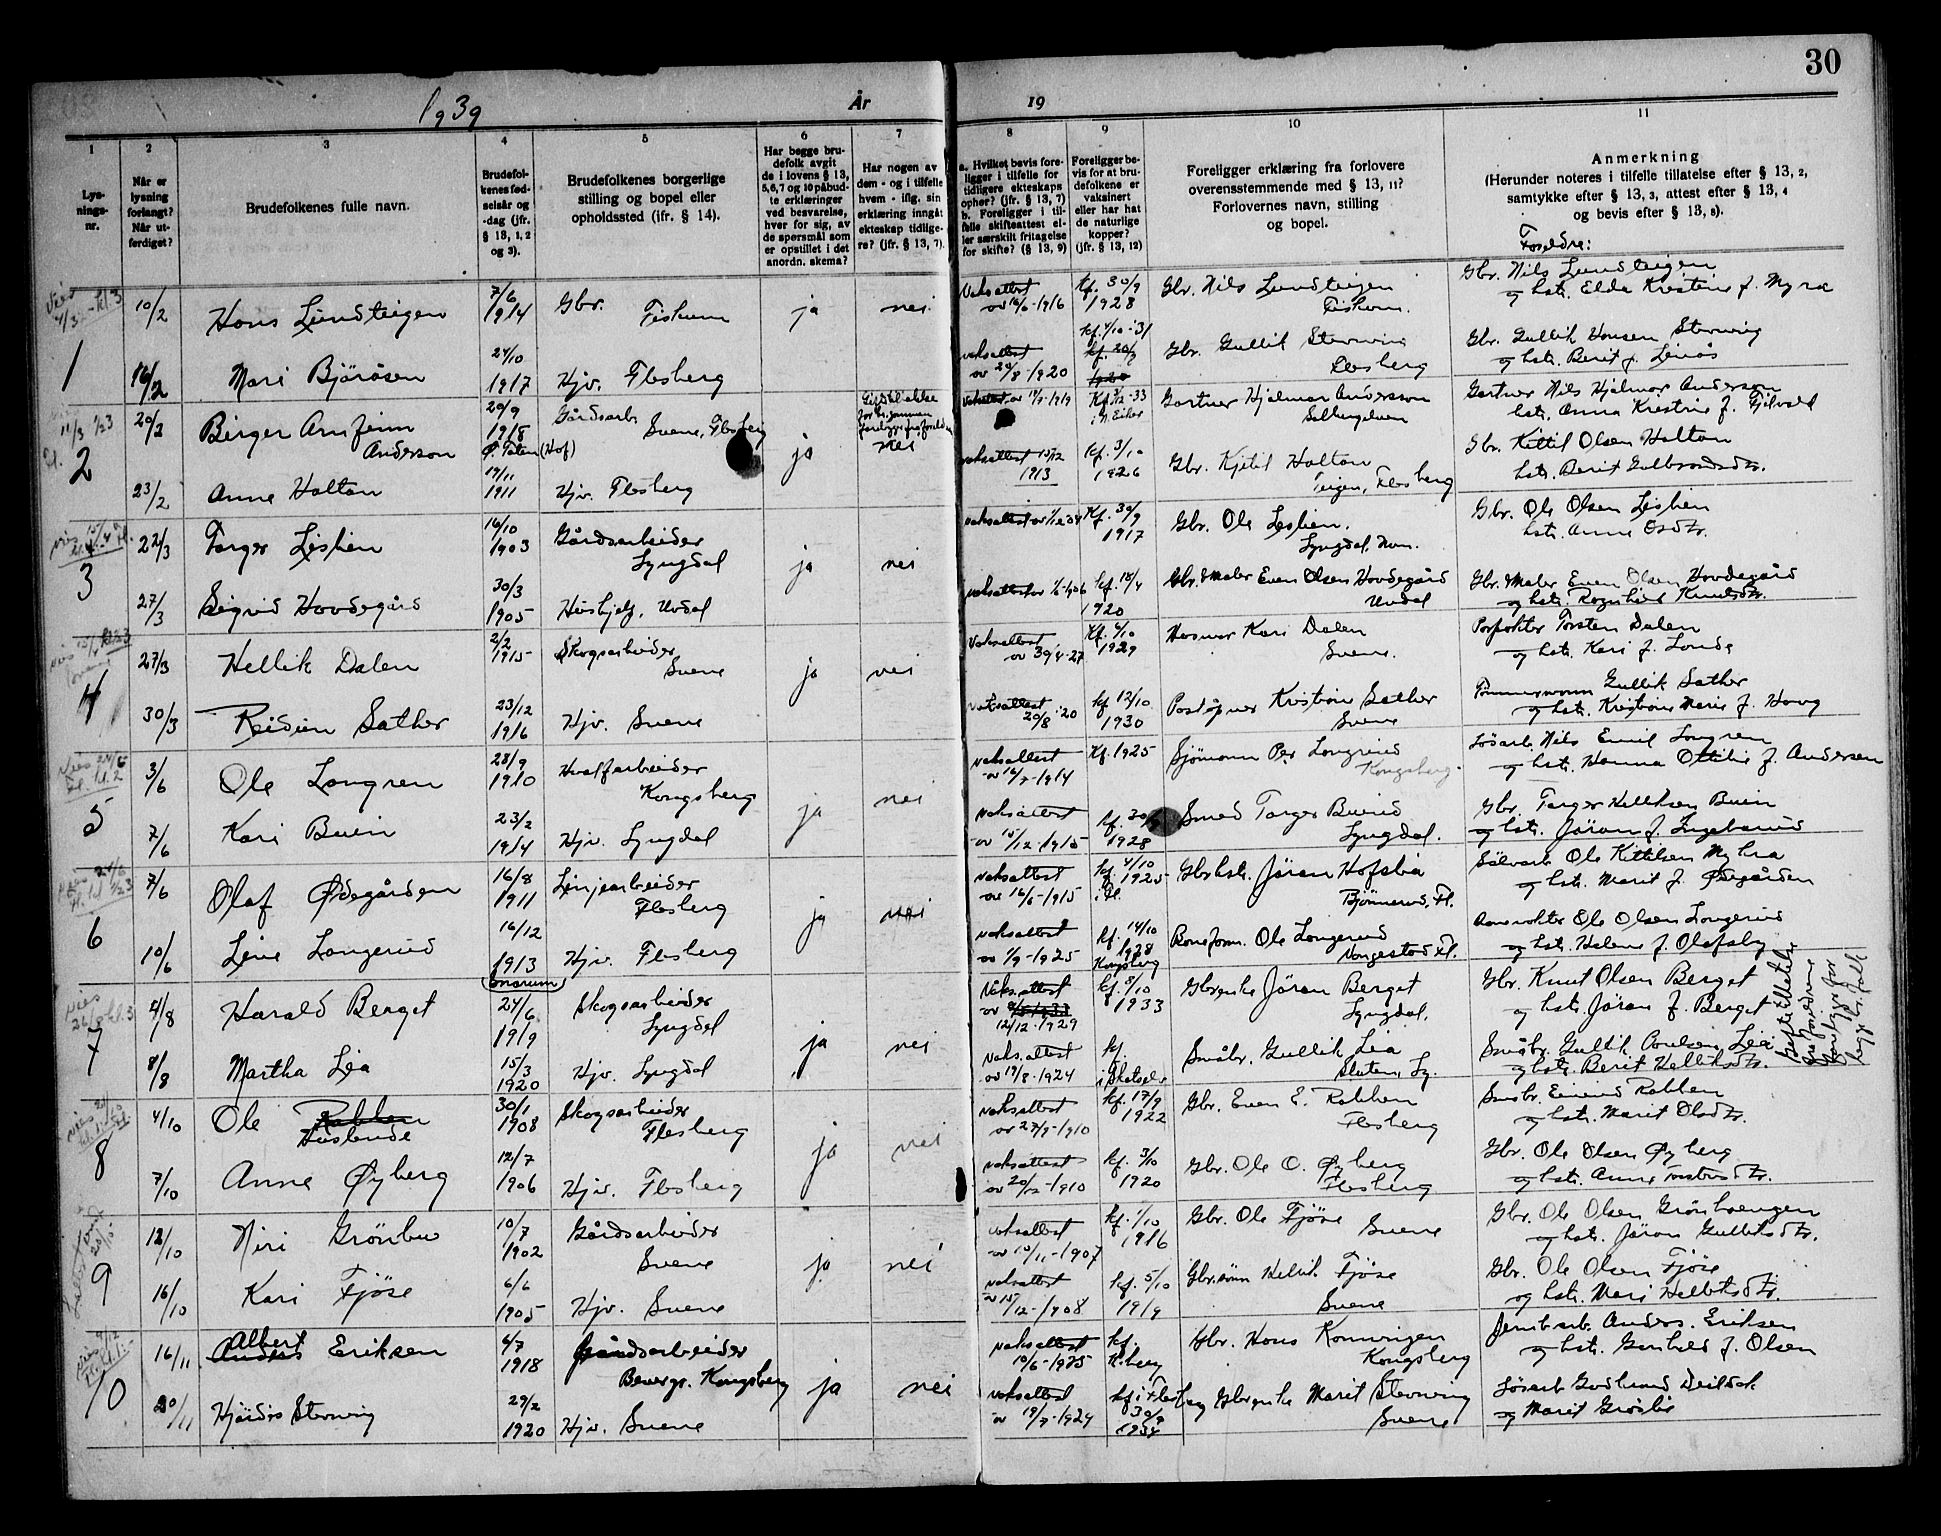 30
1939
År
19
1
Lys-
nings-
nr.
2
Når er
lysning
forlangt?
Når ut-
ferdiget?
3
Brudefolkenes fulle navn.
4
Brudefol-
kenes fød-
selsår og
-dag (jfr.
§ 13, 1, 2
og 3).
5
Brudefolkenes borgerlige
stilling og bopel eller
opholdssted (jfr. § 14).
6
Har begge bru-
defolk avgit
de i lovens § 13,
5,6,7 og 10 påbud-
te erklæringer
ved besvarelse,
hver for sig, av
de spørsmål som
er opstillet i det
anordn. skema?
7
Har nogen av
dem - og i tilfelle
hvem - iflg. sin
erklæring inngått
ekteskap tidlige-
re? (jfr. § 13, 7).
8
a. Hvilket bevis fore-
ligger i tilfelle for
tidligere ekteskaps
ophør? (jfr. § 13, 7)
b. Foreligger i til-
felle skifteattest el-
ler særskilt fritagelse
for skifte? (§ 13, 9)
9
Foreligger be-
vis for at bru-
defolkene er
vaksinert
eller har hat
de naturlige
kopper?
(jfr. § 13, 12)
10
Foreligger erklæring fra forlovere
overensstemmende med § 13, 11?
Forlovernes navn, stilling
og bopel.
11
Anmerkning
(Herunder noteres i tilfelle tillatelse efter § 13, 2,
samtykke efter § 13, 3, attest efter § 13, 4
og bevis efter § 13, 8).
Foreldre:
1
10/2
Hans Lundteigen
7/6
1914
Gbr.
Fiskum
ja
nei
Vaksattest
av 16/6-1916
kf. 30/9
1928
Gbr. Nils Lundteigen
Fiskum.
Gbr. Nils Lundteigen
og hstr. Elda Kristine f. Myra
16/2
Mari Bjøråsen
24/10
1917
Hjv. Flesberg
vaksattest
av 20/8-1920
kf. 4/10-31
Gbr. Gullik Stevning
Flesberg
Gbr. Gullik Hansen Stevning
og hstr. Berit f. Lenås
2
20/2
Birger Arnfinn
Anderson
20/9
1918
Ø. Toten (Hof)
Gårdsarb.
Svene, Flesberg
ja
nei
Gartner Hjalmar Anderson
Gartner Nils Hjalmar Anderson
hstr. Anna Kristine f.
23/2
Anne Haltan
19/11
1911
Hjv. Flesberg
vaksattest 15/12
1913
kf. 3/10
1926
Gbr. Kjetil Haltan
Teigen, Flesberg
Gbr. Kittil Olsen Haltan
hstr. Berit Gulbrandsdtr.
3
22/3
Targer Lislien
16/10
1903
Gårdsarbeider
Lyngdal
ja
nei
Kf. 30/9
1917
Gbr. Ole Lislien.
Lyngdal, Num.
Gbr. Ole Olsen Lislien
hstr. Anne Osdtr.
27/3
Sigrid Hovdegård
30/3
1905
Hushjelp, Uvdal
kf. 18/4
1920
Gbr. & Maler Even Olsen Hovdegård
Uvdal
Gbr. & Maler Even Olsen Hovdegård
og hstr. Ragnhild Knutsdtr.
4
27/3
Hellik Dalen
2/2
1915
Skogsarbeider,
Svene
ja
nei
Vaksattest
av 30/4-27
Kf. 4/10
1929
Husmor Kari Dalen
Svene.
Torsten Dalen
og hstr. Kari f. Lande
30/3
Reidun Sather
23/12
1916
Hjv. Svene
Vaksattest
20/8-20
kf 12/10
1930
Poståpner Kristian Sather
Svene
Tømmermann Gullik Sather
og hstr. Kristiane Marie f. Haug
5
3/6
Ole Longren
28/9
1910
Hvalfarbeider
Kongsberg
ja
nei
vaksattest
av 16/7-1914
Kf. 1925
Sjømann Per Longrend
Kongsberg.
Løsarb. Nils Emil Longren
og hstr. Hanna Ottilie f. Andersen
7/6
Kari Buin
23/2
1914
Hjv. Lyngdal
vaksattest
av 10/12-1915
kf. 30/9
1928
Smed Targer Buind
Lyngdal.
Gbr. Targer Helliksen Buin
og hstr. Jøran f. Ingebørud
6
7/6
Olaf Ødegården
16/8
1911
Linjearbeider
Flesberg
ja
nei
vaksattest
av 16/6-1915
kf. 4/10
1925
i Fl.
Gbrhstr. Jøran Hofsbia
Bjønnerud, Fl.
Sølvarb Ole Kittilsen Myhra
og hstr. Marit f. Ødegården
10/6
Line Langerud
16/12
1913
Hjv. Flesberg
vaksattest
av 1/9-1925
kf. 14/10
1928
Kongsberg
Baneform. Ole Langerud
Vangestad Fl.
Banevokter Ole Olsen Langerud
og hstr. Helene f. Olafsby
7
4/8
Harald Berget
24/6
1919
Skogsarbeider
Lyngdal
ja
nei
Vaks.attest
12/12-1929
kf. 8/10
1933
Gbrenke Jøran Berget
Lyngdal.
Gbr. Knut Olsen Berget
og hstr. Jøran f. Berget
8/8
Martha Lia
15/3
1920
Hjv. Lyngdal
vaks.attest
av 19/8-1924
kf.
Småbr. Gullik Lia
Slaten, Ly.
Småbr. Gullik Paulsen Lia
og hstr. Berit Helliksdtr.
8
4/10
Ole Rabben
Huslende
30/1
1908
Skogsarbeider
Flesberg
ja
nei
vaks.attest
av 27/9-1910
kf. 17/9
1922
Gbr. Even E. Rabben
Flesberg
Småbr. Eivind Rabben
og hstr. Marit Olsdtr.
7/10
Anne Øyberg
12/7
1906
Hjv. Flesberg
vaksattest
av 20/12-1910
kf. 3/10
1920
Gbr. Ole O. Øyberg
Flesberg
Gbr. Ole Olsen Øyberg
og hstr. Anne Torstensdtr.
9
12/10
Niri Grønbu
10/7
1902
Gårdsarbeider
Svene
ja
nei
vaksattest
av 10/11-1907
kf. 1/10
1916
Gbr. Ole Fjøse
Svene
Gbr. Ole Olsen Grønhovengen
og hstr. Jøran Gulliksdtr.
16/10
Kari Fjøse
6/6
1905
Hjv. Svene
vaksattest
av 15/12-1908
kf. 5/10
1919
Gbr.sønn Hellik Fjøse
Svene
Gbr. Ole Olsen Fjøse
og hstr. Mari Helliksdtr.
10
16/11
Albert
Anders Eriksen
6/7
1918
Gårdsarbeider
Bevergr. Kongsberg
ja
nei
vaksattest
10/6-1925
kf.
K.berg
Gbr. Hans Konvingen
Kongsberg
Jernb.arb. Anders Eriksen
og hstr. Gunhild f. Olsen
20/11
Hjørdis Stevning
29/2
1920
Hjv. Svene
vaksattest
av 19/7-1924
kf. i Flesberg
30/9
1934
Gbrenke Marit Stevning
Svene
Løsarb Gudbrand
og Marit Grøslie